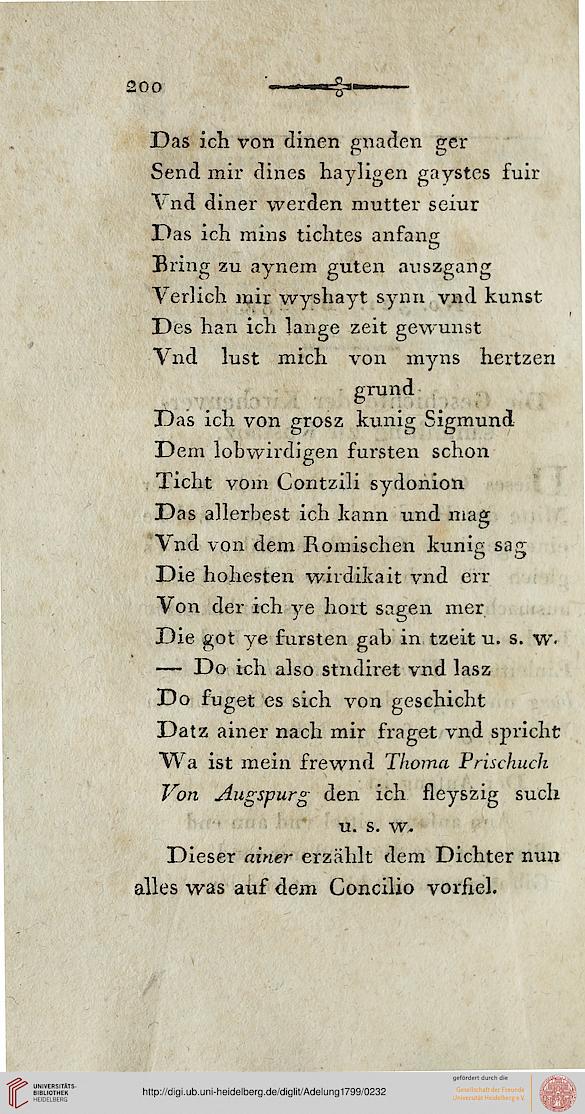 200
Das ich von dinen gnaden ger
Send mir dines hayligen gaystes fuir
Vnd diner werden mutter seiur
Das ich mins tichtes anfang
Bring zu aynem guten auszgang
Verlich mir wyshayt synn vnd kunst
Des han ich lange zeit gewunst
Vnd lust mich von myns hertzen
grund
Das ich von grosz kunig Sigmund
Dem lobwirdigen fursten schon
Ticht vom Contzili sydonion
Das allerbest ich kann und mag
Vnd von dem Romischen kunig sag
Die hohesten wirdikait vnd err
Von der ich ye hort sagen mer
Die got ye fursten gab in tzeit u. s. w.
— Do ich also stndiret vnd lasz
Do fuget es sich von geschicht
Datz ainer nach mir fraget vnd spricht
Wa ist mein frewnd Thoma Prischuch
Von Augspurg den ich fleyszig such
u. s. w.
Dieser ainer erzählt dem Dichter nun
alles was auf dem Concilio vorfiel.
UNIVERSITÄTS-
BIBLIOTHEK
HEIDELBERG
http://digi.ub.uni-heidelberg.de/diglit/Adelung1799/0232
gefördert durch die
Gesellschaft der Freunde
Universität Heidelberg e.V.